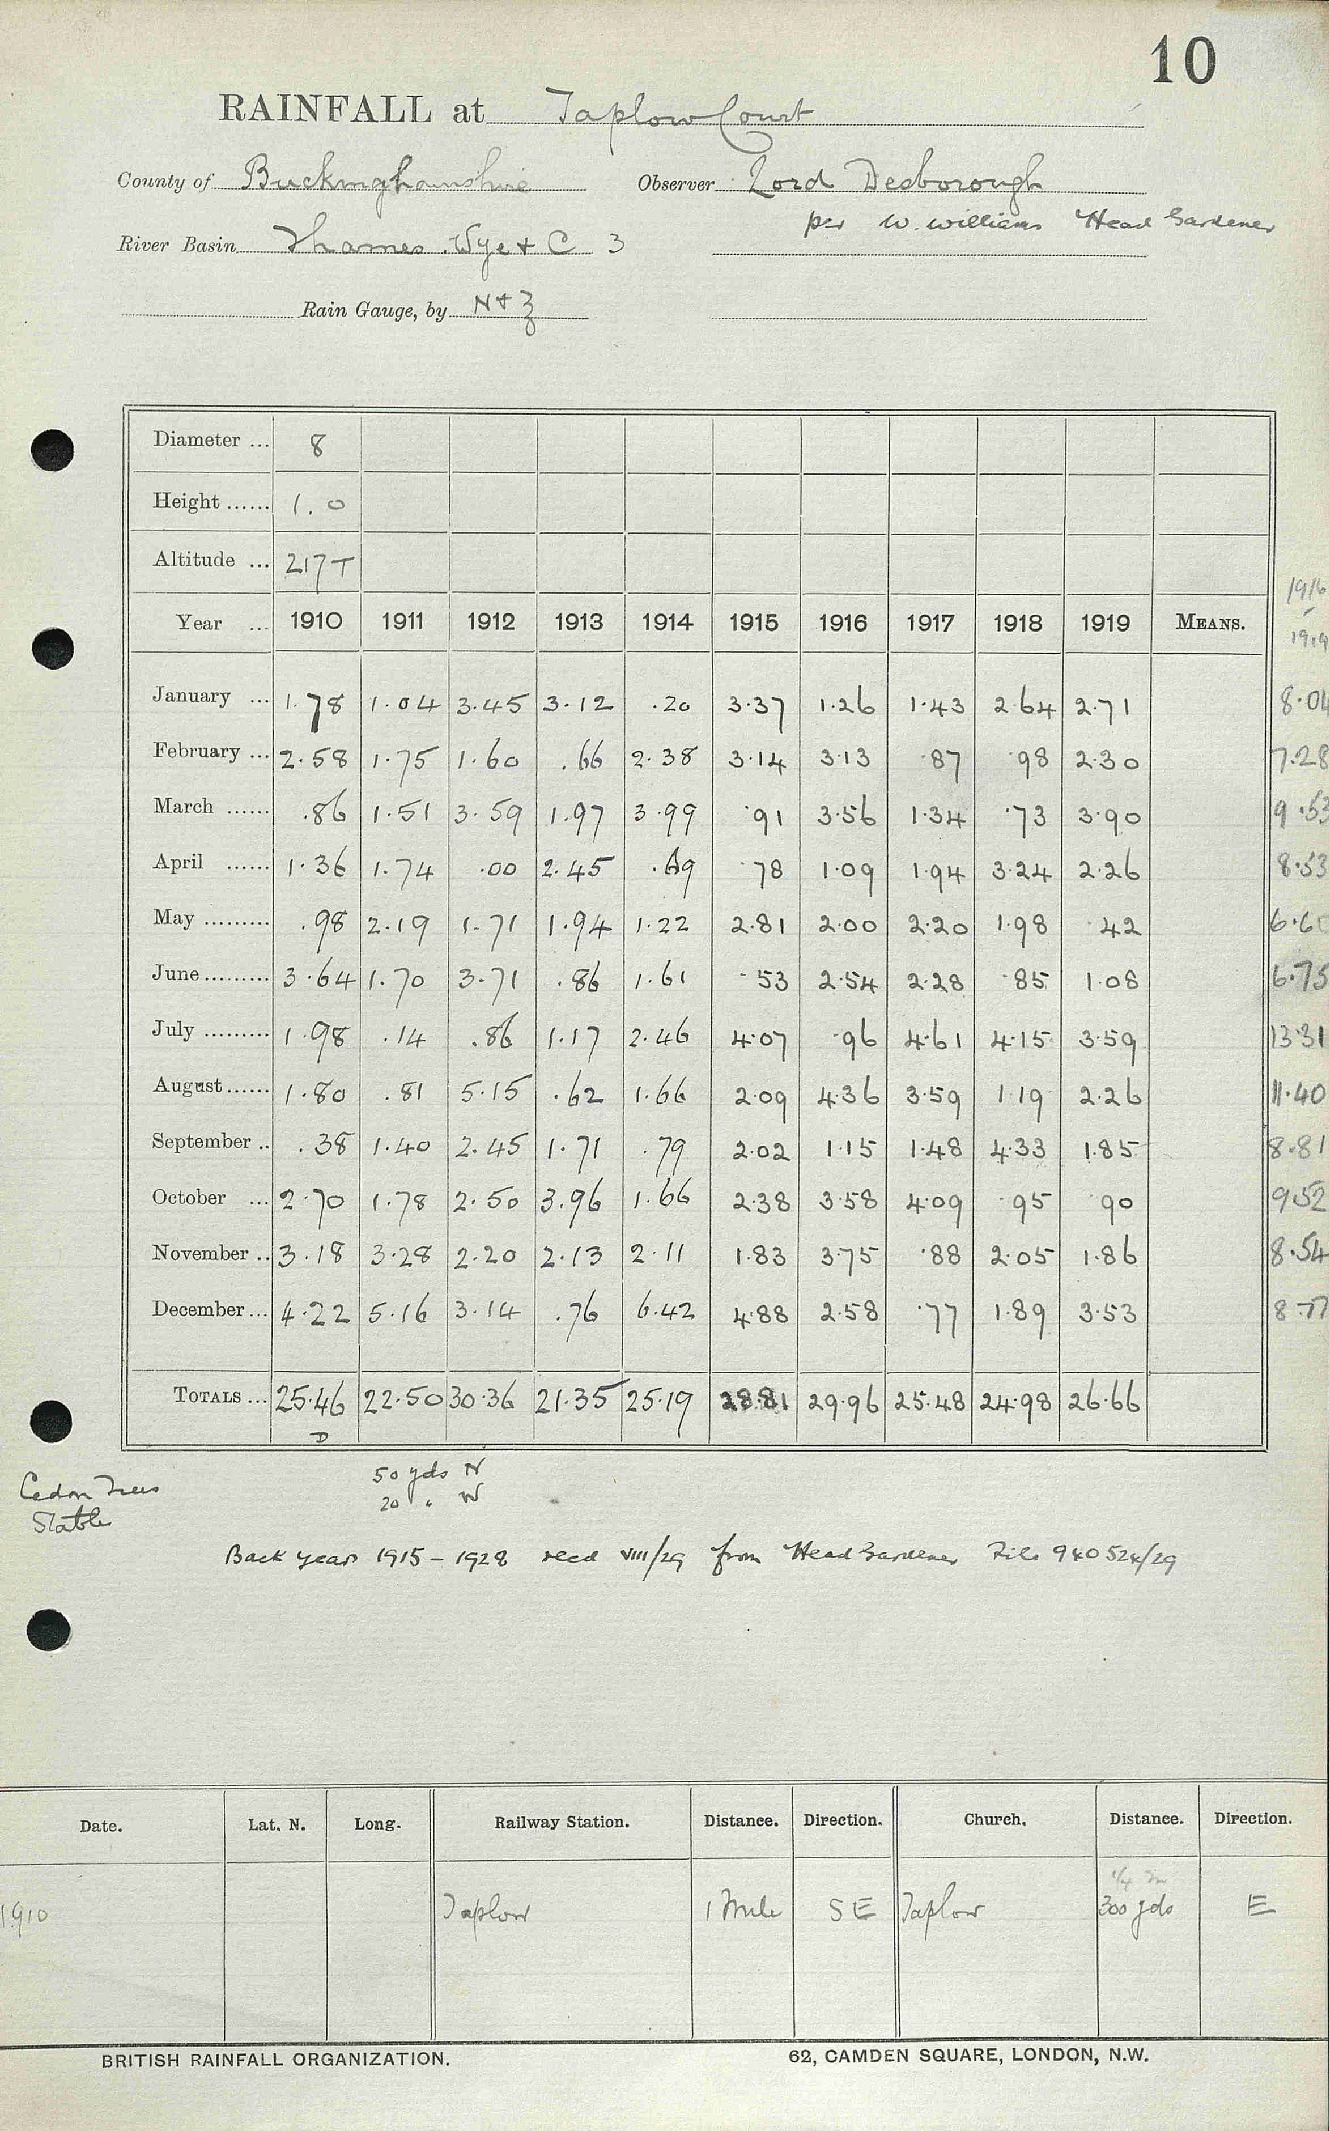 10
RAINFALL at Taplow Court
County of Buckinghamshire Observer Lord Desborough
per W. Williams Head Gardener
River Basin Thames. Wye & C 3
Rain Gauge, by N & Z
Diameter ... 8
Height ...... 1.0
Altitude ... 217 T
1916
Year ... 1910 1911 1912 1913 1914 1915 1916 1917 1918 1919 MEANS.
1919
January ... 1.78 1.04 3.45 3.12 .20 3.37 1.26 1.43 2.64 2.71 8.04
February ... 2.58 1.75 1.60 .66 2.38 3.14 3.13 .87 .98 2.30 7.28
March ...... .86 1.51 3.59 1.97 3.99 .91 3.56 1.34 .73 3.90 9.53
April ...... 1.36 1.74 .00 2.45 .69 .78 1.09 1.94 3.24 2.26 8.53
May ......... .98 2.19 1.71 1.94 1.22 2.81 2.00 2.20 1.98 .42 6.60
June ......... 3.64 1.70 3.71 .86 1.61 .53 2.54 2.28 .85 1.08 6.75
July ......... 1.98 .14 .86 1.17 2.46 4.07 .96 4.61 4.15 3.59 13.31
August ...... 1.80 .81 5.15 .62 1.66 2.09 4.36 3.59 1.19 2.26 11.40
September .. .38 1.40 2.45 1.71 .79 2.02 1.15 1.48 4.33 1.85 8.81
October ... 2.70 1.78 2.50 3.96 1.66 2.38 3.58 4.09 .95 .90 9.52
November .. 3.18 3.28 2.20 2.13 2.11 1.83 3.75 .88 2.05 1.86 8.54
December ... 4.22 5.16 3.14 .76 6.42 4.88 2.58 .77 1.89 3.53 8.77
TOTALS ... 25.46 22.50 30.36 21.35 25.19 28.81 29.96 25.48 24.98 26.66
D
Cedar Trees 50 yds N
Stable 20 " W
Back years 1915 - 1928 recd VIII/29 from Head Gardener File 940524/29
Date. Lat. N. Long. Railway Station. Distance. Direction. Church. Distance. Direction.
1/4 m
1910 Taplow 1 Mile SE Taplow 300 yds E
BRITISH RAINFALL ORGANIZATION. 62, CAMDEN SQUARE, LONDON, N.W.